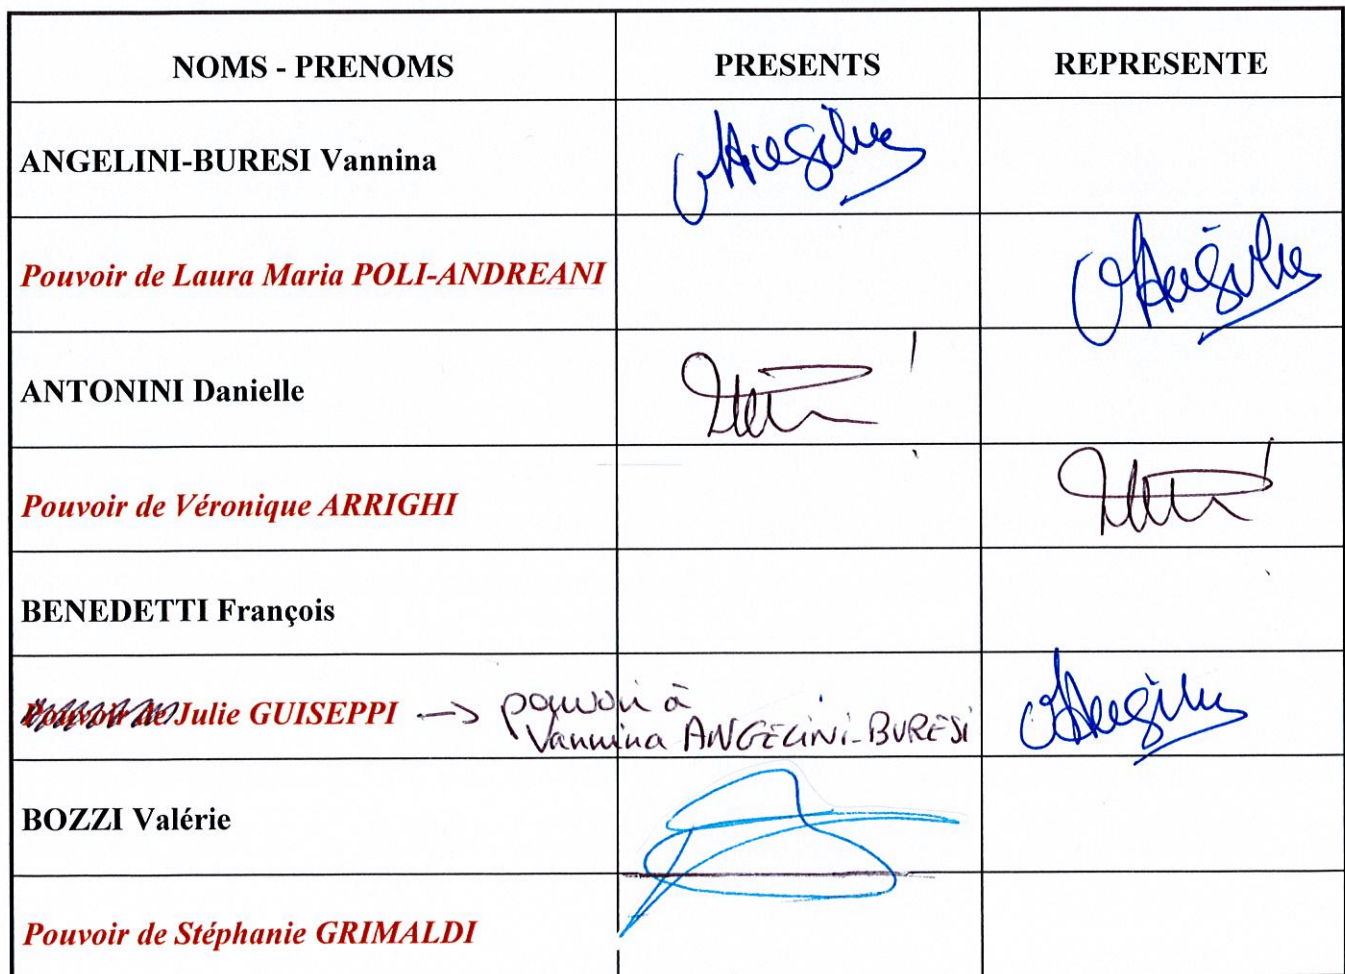 NOMS - PRENOMS PRESENTS REPRESENTE
ANGELINI-BURESI Vannina
Pouvoir de Laura Maria POLI-ANDREANI
ANTONINI Danielle
Pouvoir de Véronique ARRIGHI
BENEDETTI François
Pouvoir de Julie GUISEPPI → pouvoir à
Vannina ANGELINI-BURESI
BOZZI Valérie
Pouvoir de Stéphanie GRIMALDI